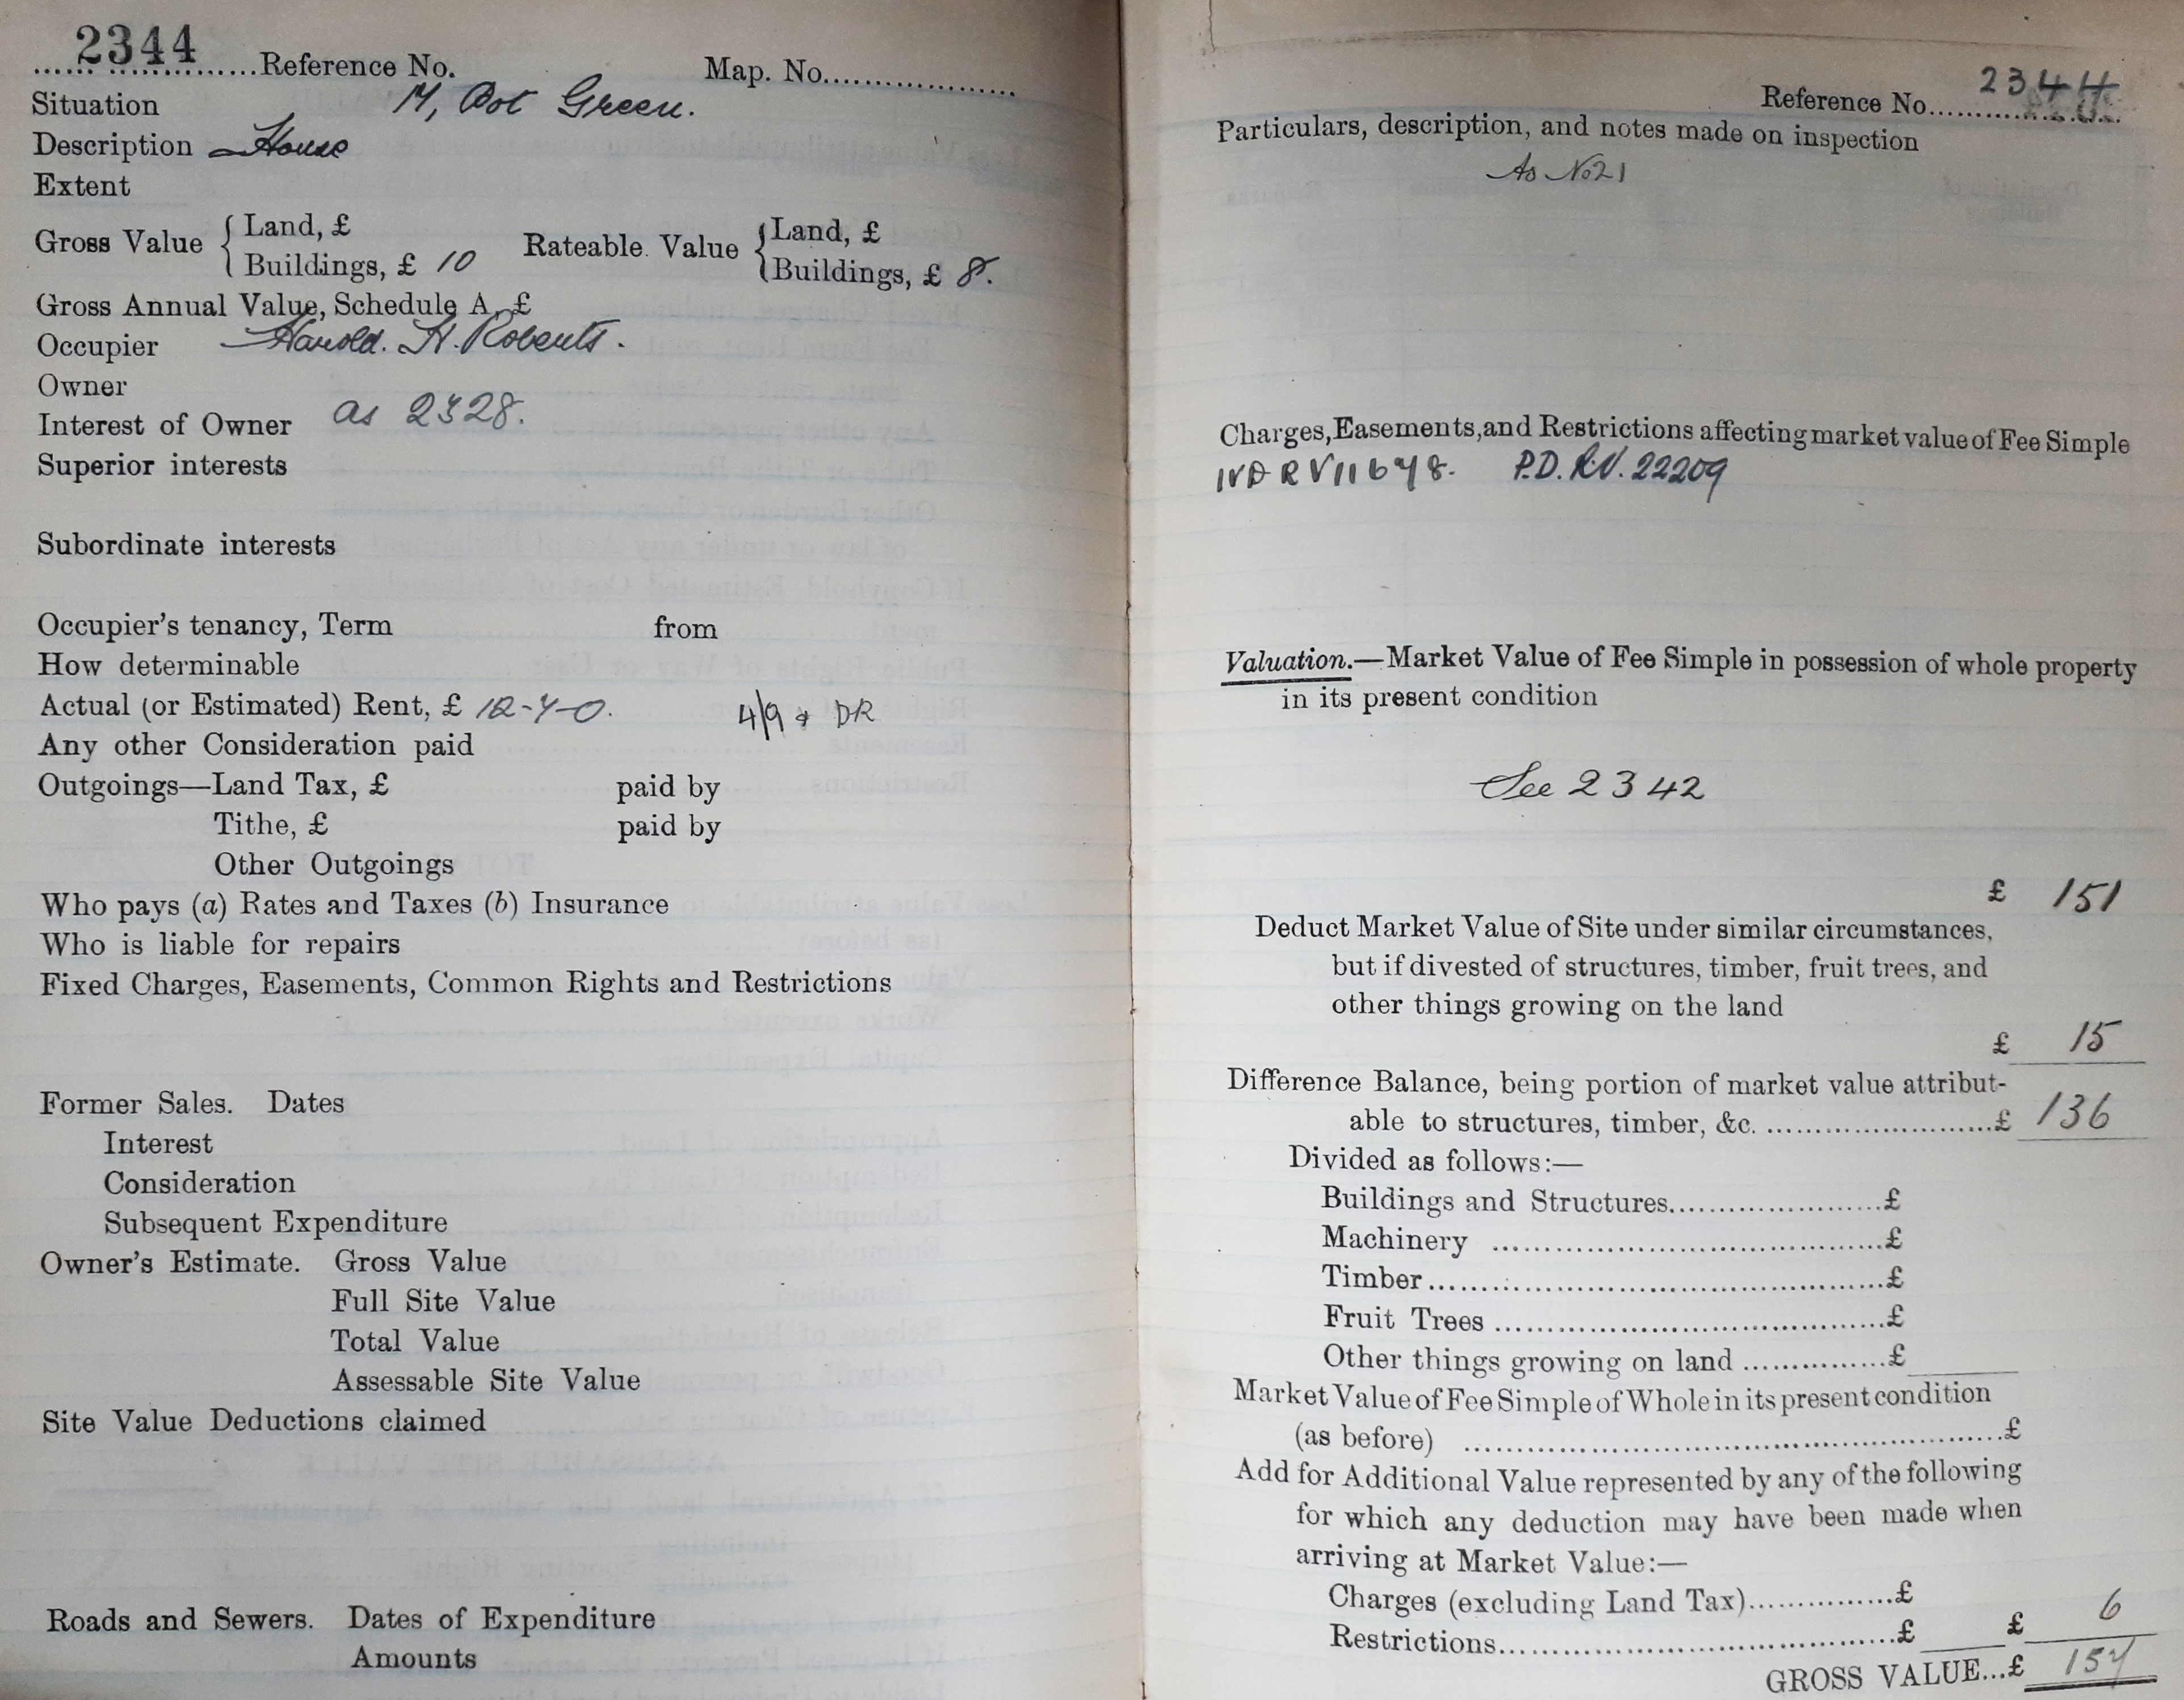 2344
Reference No. Map. No.
Situation 17, Bot Green.
Description House
Extent
Gross Value { Land, £
Buildings, £ 10
Rateable Value { Land, £
Buildings, £ 8.
Gross Annual Value, Schedule A, £
Occupier Harold. H. Roberts.
Owner
Interest of Owner as 2328.
Superior interests
Subordinate interests
Occupier's tenancy, Term from
How determinable
Actual (or Estimated) Rent, £ 12-7-0. 4/9 & DR
Any other Consideration paid
Outgoings—Land Tax, £ paid by
Tithe, £ paid by
Other Outgoings
Who pays (a) Rates and Taxes (b) Insurance
Who is liable for repairs
Fixed Charges, Easements, Common Rights and Restrictions
Former Sales. Dates
Interest
Consideration
Subsequent Expenditure
Owner's Estimate. Gross Value
Full Site Value
Total Value
Assessable Site Value
Site Value Deductions claimed
Roads and Sewers. Dates of Expenditure
Amounts
Reference No. 2344
Particulars, description, and notes made on inspection
As No 21
Charges, Easements, and Restrictions affecting market value of Fee Simple
IVD RV 11678. P.D. R.V. 22209
Valuation.—Market Value of Fee Simple in possession of whole property
in its present condition
See 2342
£ 151
Deduct Market Value of Site under similar circumstances,
but if divested of structures, timber, fruit trees, and
other things growing on the land
£ 15
Difference Balance, being portion of market value attribut-
able to structures, timber, &c. £ 136
Divided as follows:—
Buildings and Structures £
Machinery £
Timber £
Fruit Trees £
Other things growing on land £
Market Value of Fee Simple of Whole in its present condition
(as before) £
Add for Additional Value represented by any of the following
for which any deduction may have been made when
arriving at Market Value:—
Charges (excluding Land Tax) £
Restrictions £ £ 6
GROSS VALUE...£ 157